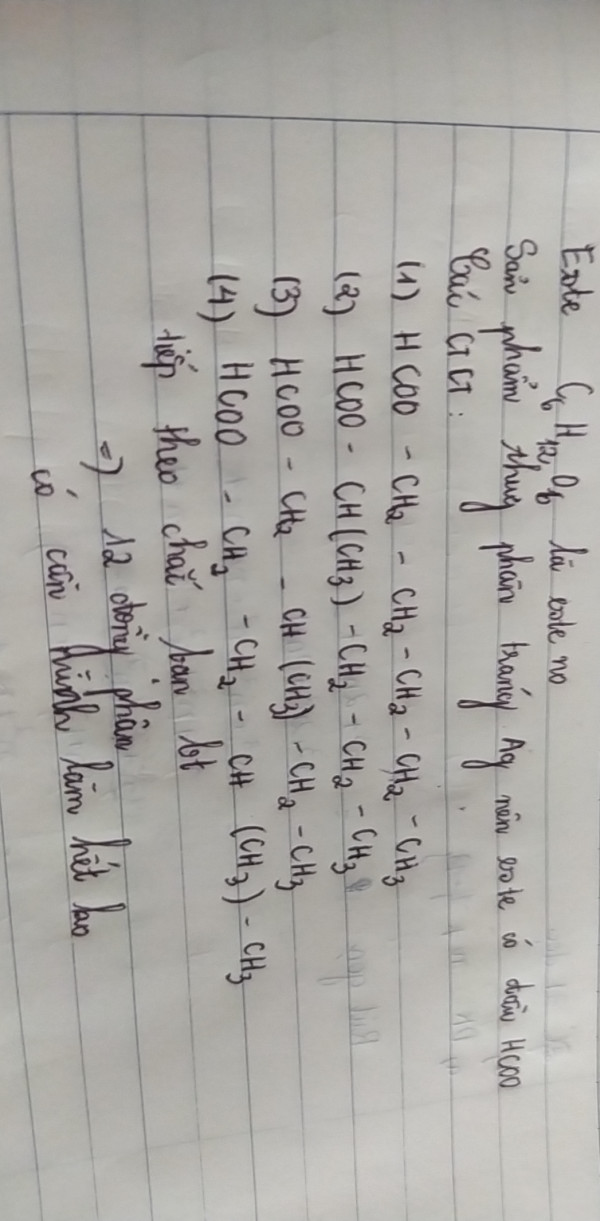 Este C6H12O6 là este no
Sản phẩm thuỷ phân tráng Ag nên este có đầu HCOO
Các CTCT:
(1) HCOO - CH2 - CH2 - CH2 - CH2 - CH3
(2) HCOO - CH(CH3) - CH2 - CH2 - CH3
(3) HCOO - CH2 - CH(CH3) - CH2 - CH3
(4) HCOO - CH2 - CH2 - CH(CH3) - CH3
tiếp theo chắc bạn bt
=) 12 đồng phân
có cần mình làm hết ko